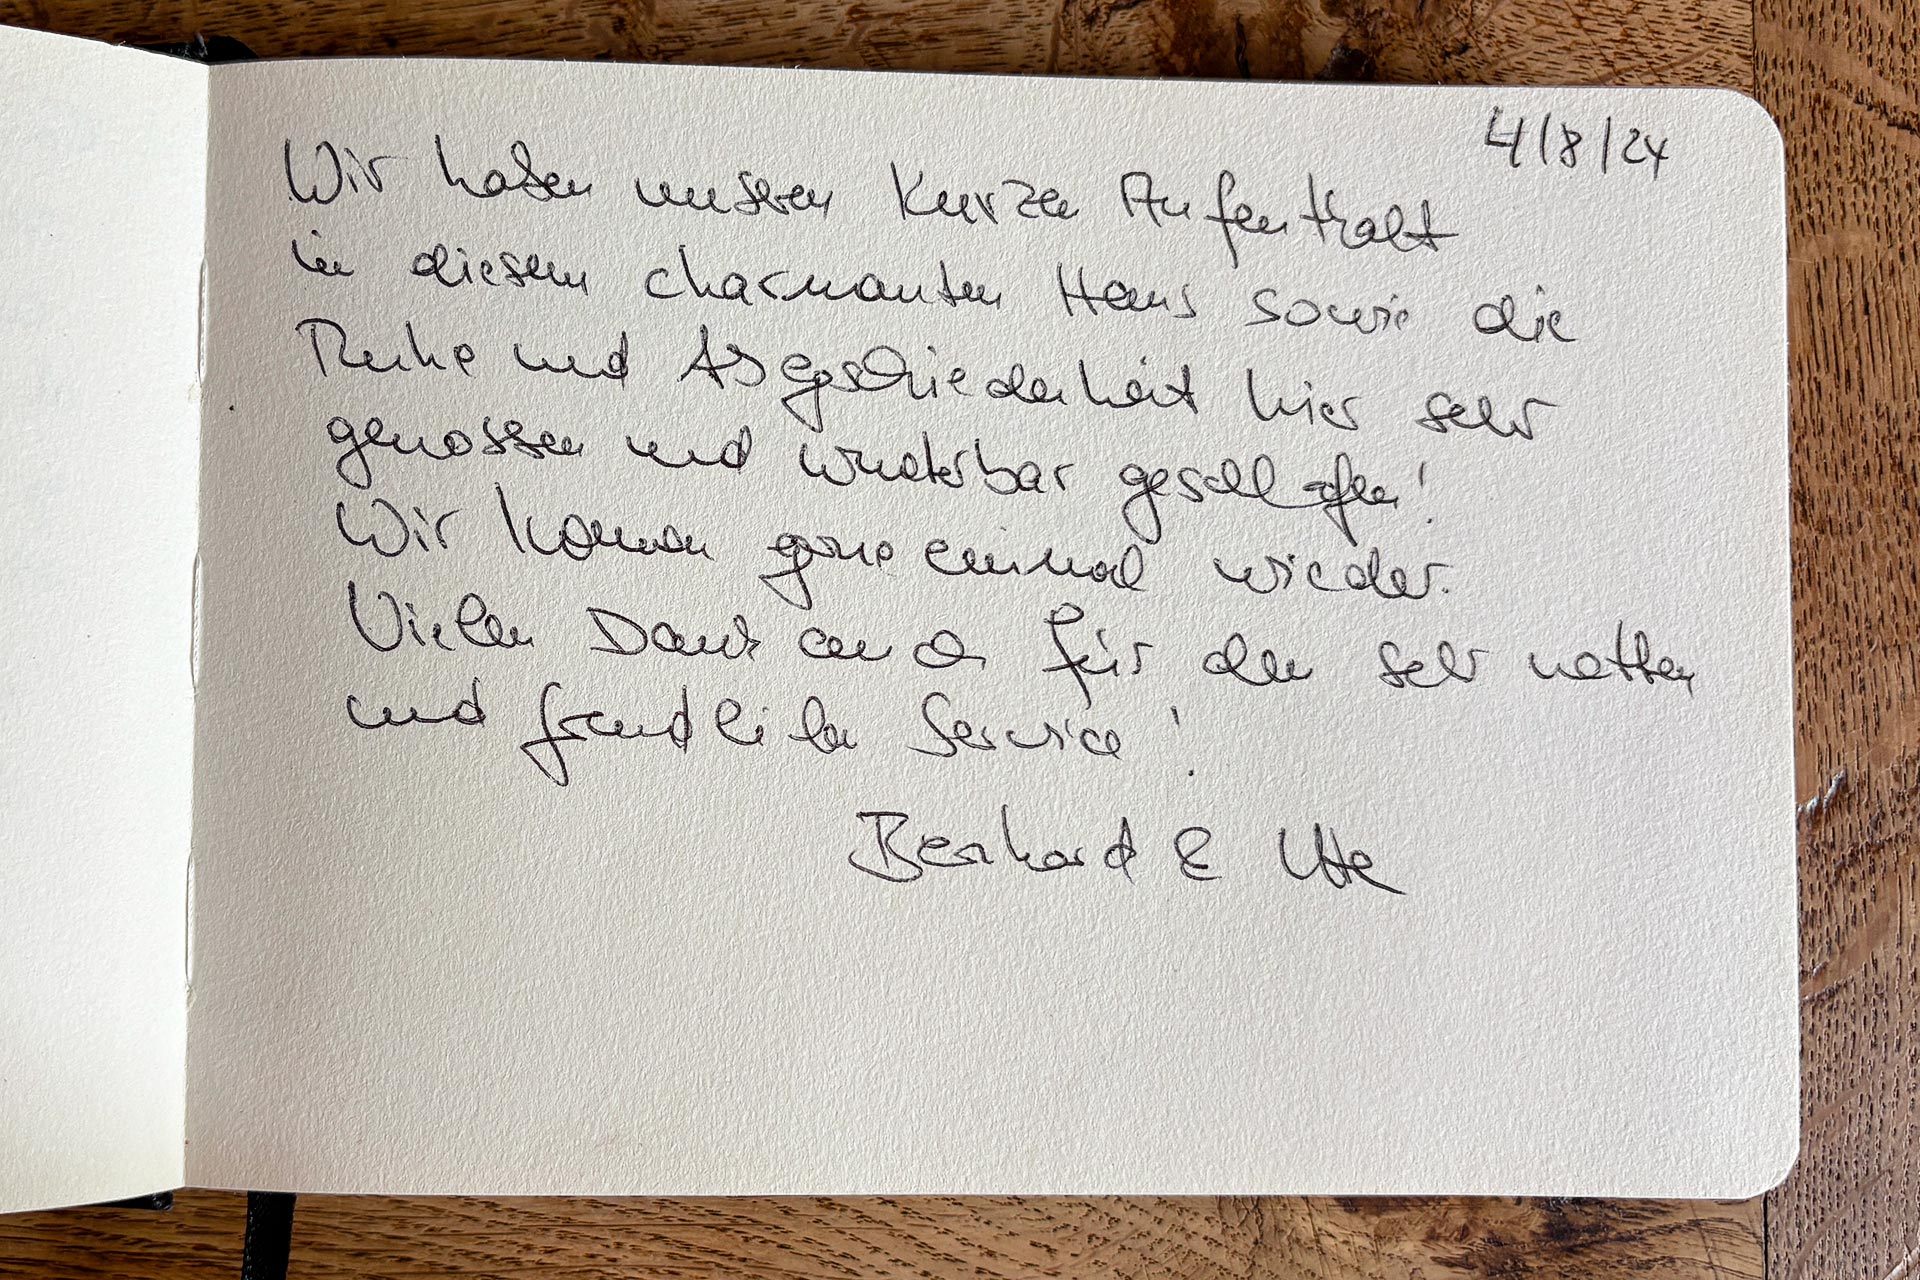 4/8/24
Wir haben unseren kurzen Aufenthalt
in diesem charmanten Haus sowie die
Ruhe und Abgeschiedenheit hier sehr
genossen und wunderbar geschlafen!
Wir kommen gerne einmal wieder.
Vielen Dank auch für den sehr netten
und freundlichen Service!
Bernhard & Ute